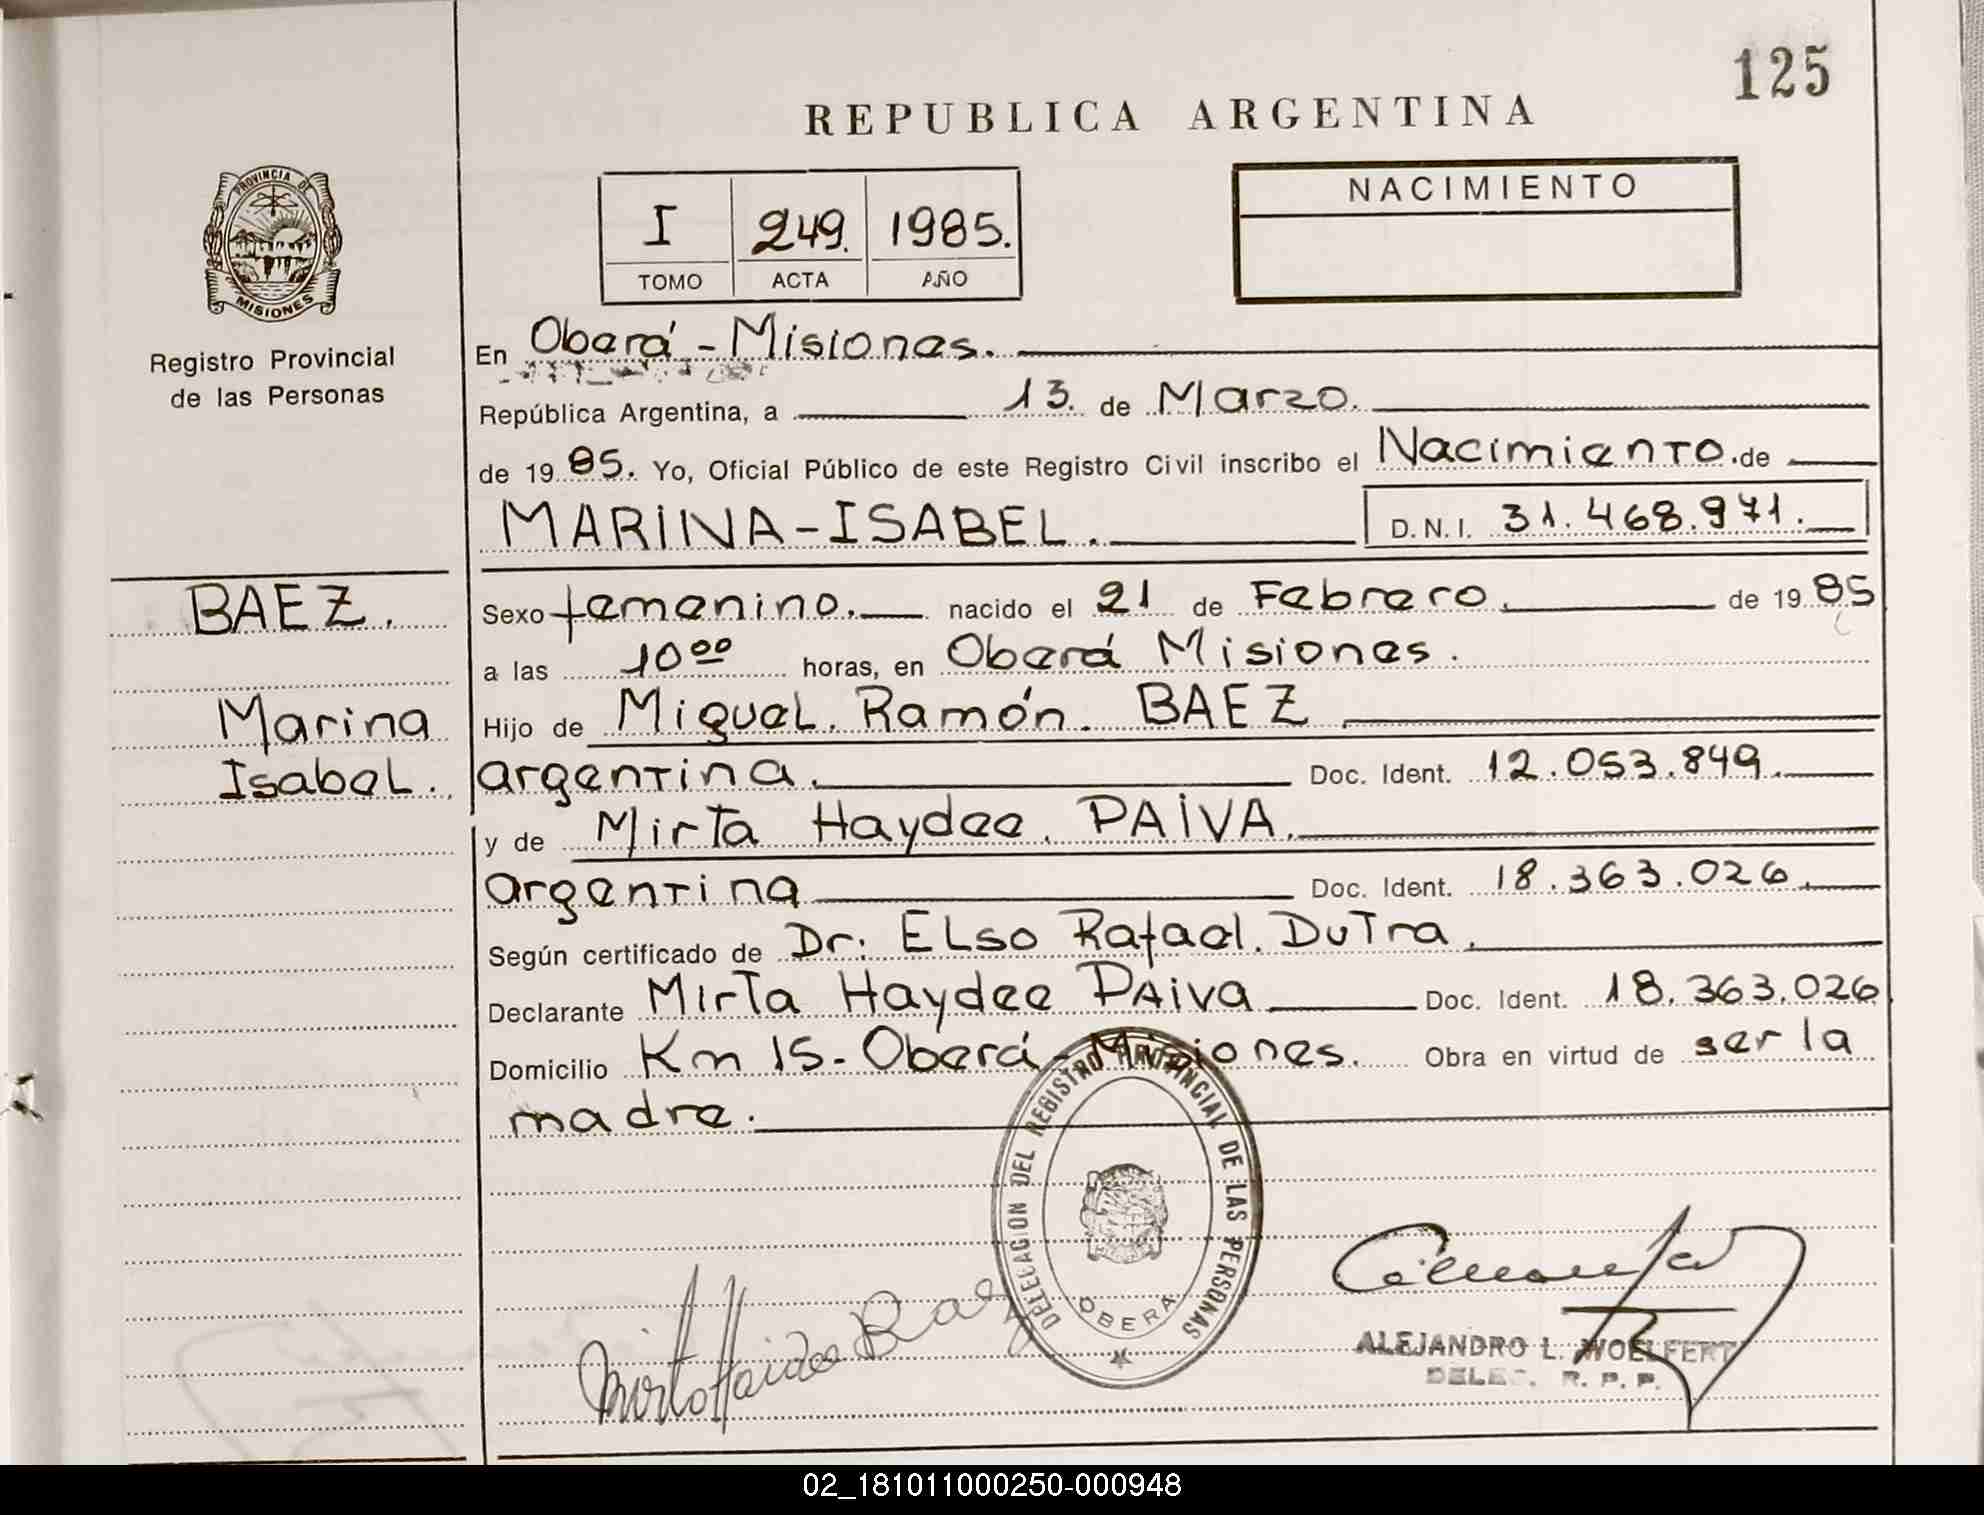 125
REPUBLICA ARGENTINA
PROVINCIA DE
MISIONES
Registro Provincial
de las Personas
I 249. 1985.
TOMO ACTA AÑO
NACIMIENTO
En Oberá - Misiones.
República Argentina, a 13. de Marzo.
de 19 85. Yo, Oficial Público de este Registro Civil inscribo el Nacimiento. de
MARINA-ISABEL. D.N.I. 31.468.971.
BAEZ.
Marina
Isabel.
Sexo femenino. nacido el 21 de Febrero. de 19 85
a las 10 00 horas, en Oberá Misiones.
Hijo de Miguel. Ramón. BAEZ
argentina. Doc. Ident. 12.053.849.
y de Mirta Haydee. PAIVA.
argentina Doc. Ident. 18.363.026.
Según certificado de Dr: Elso Rafael. Dutra.
Declarante Mirta Haydee Paiva Doc. Ident. 18.363.026
Domicilio Km 15- Oberá - Misiones. Obra en virtud de ser la
madre.
DELEGACION DEL REGISTRO PROVINCIAL DE LAS PERSONAS
OBERA
Mirta Haidee Baez
ALEJANDRO L. WOELFERT
DELEG. R. P. P.
02_181011000250-000948